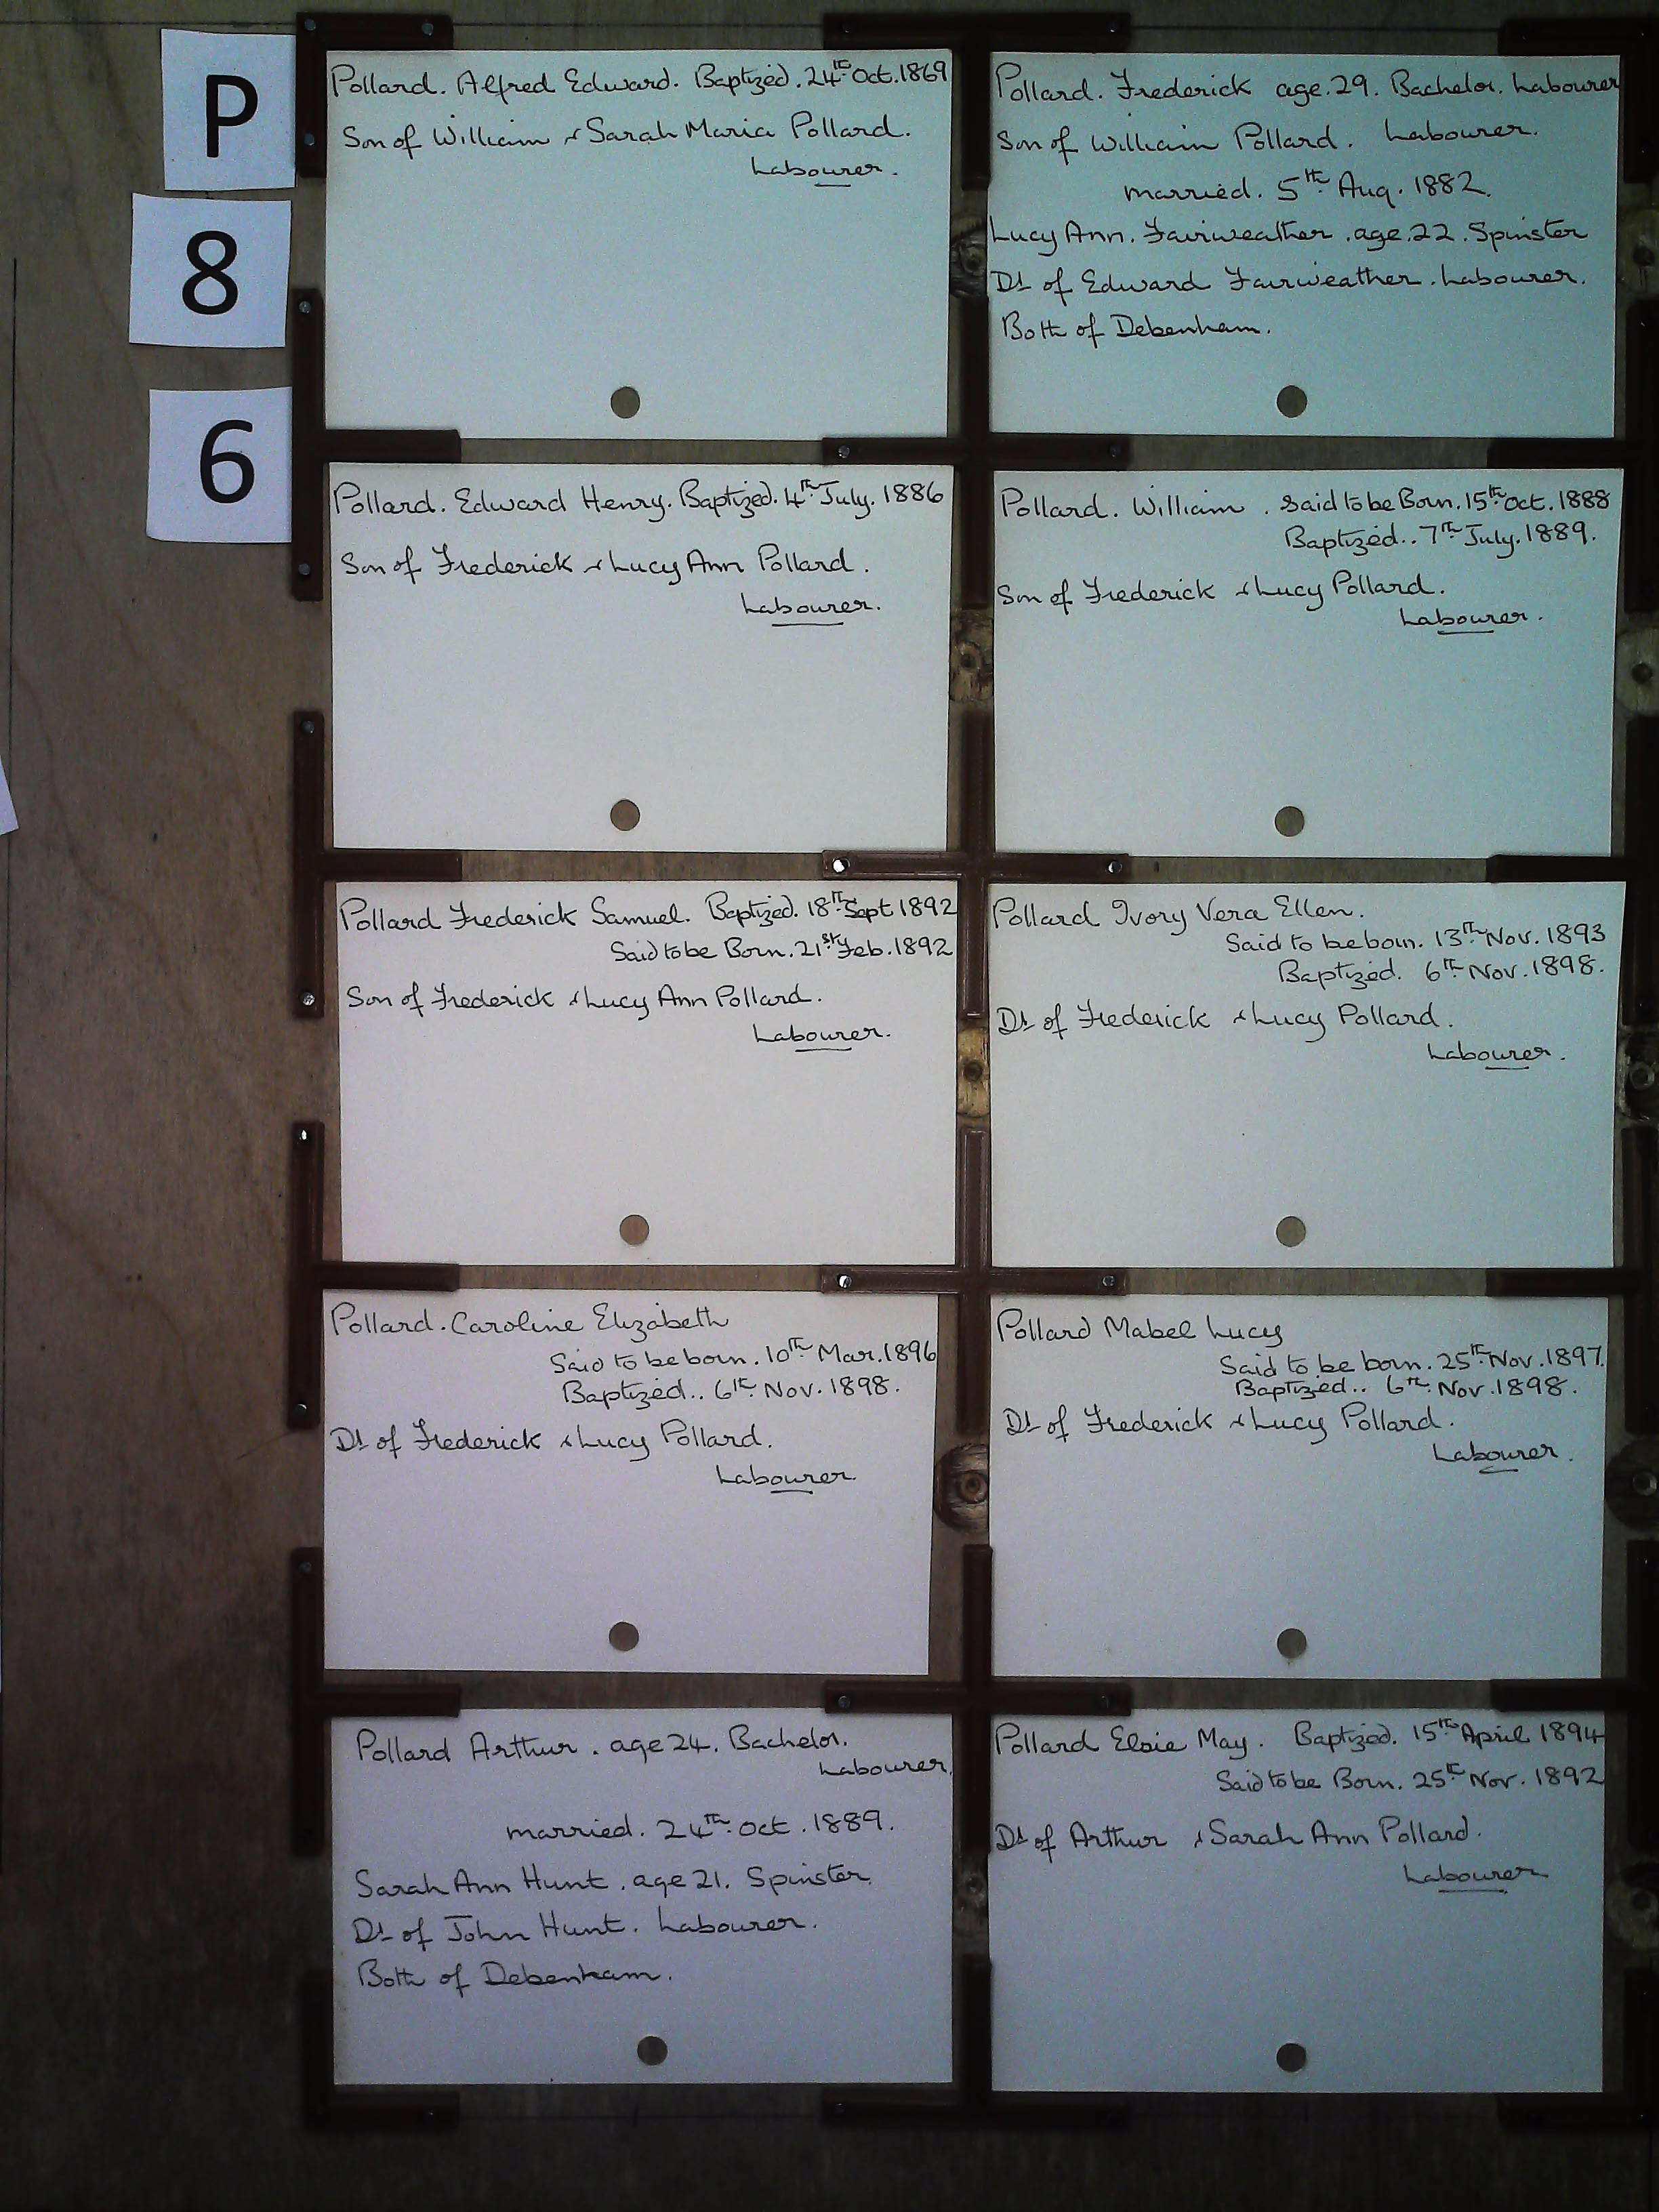 P
8
6
Pollard. Alfred Edward. Baptized. 24th Oct. 1869
Son of William & Sarah Maria Pollard.
Labourer.
Pollard. Frederick age. 29. Bachelor. Labourer
Son of William Pollard. Labourer.
married. 5th Aug. 1882.
Lucy Ann. Fairweather. age. 22. Spinster
Dt of Edward Fairweather. Labourer.
Both of Debenham.
Pollard. Edward Henry. Baptized. 4th July. 1886
Son of Frederick & Lucy Ann Pollard.
Labourer.
Pollard. William. Said to be Born. 15th Oct. 1888
Baptized.. 7th July. 1889.
Son of Frederick & Lucy Pollard.
Labourer.
Pollard Frederick Samuel. Baptized. 18th Sept 1892
Said to be Born. 21st Feb. 1892
Son of Frederick & Lucy Ann Pollard.
Labourer.
Pollard Ivory Vera Ellen.
Said to be born. 13th Nov. 1893
Baptized. 6th Nov. 1898.
Dt of Frederick & Lucy Pollard.
Labourer.
Pollard. Caroline Elizabeth
Said to be born. 10th Mar. 1896
Baptized.. 6th Nov. 1898.
Dt of Frederick & Lucy Pollard.
Labourer.
Pollard Mabel Lucy
Said to be born. 25th Nov. 1897.
Baptized.. 6th Nov. 1898.
Dt of Frederick & Lucy Pollard.
Labourer.
Pollard Arthur. age 24. Bachelor.
Labourer.
married. 24th Oct. 1889.
Sarah Ann Hunt. age 21. Spinster.
Dt of John Hunt. Labourer.
Both of Debenham.
Pollard Elsie May. Baptized. 15th April 1894
Said to be Born. 25th Nov. 1892
Dt of Arthur & Sarah Ann Pollard.
Labourer